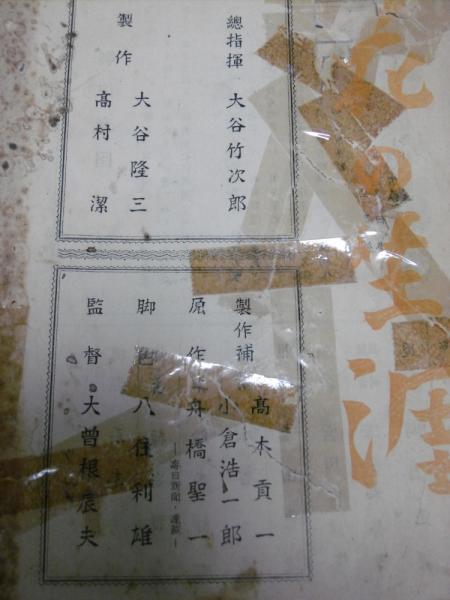 花の生涯
總指揮 大谷竹次郎
製作 大谷隆三
高村潔
製作補 高木貢一
小倉浩一郎
原作 舟橋聖一
―毎日新聞・連載―
脚色 八住利雄
監督 大曾根辰夫